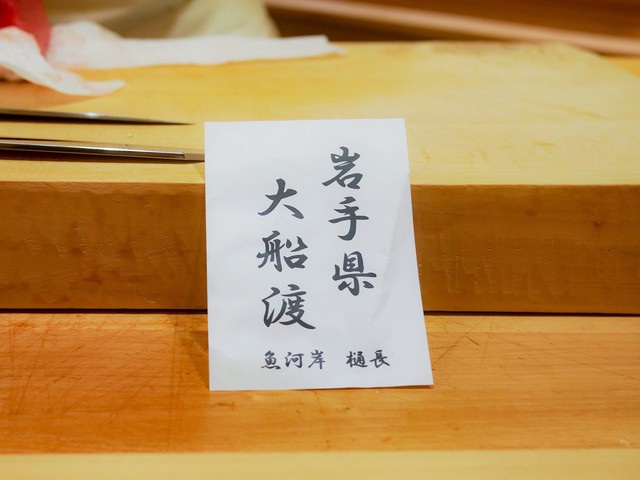 岩手県
大船渡
魚河岸 樋長